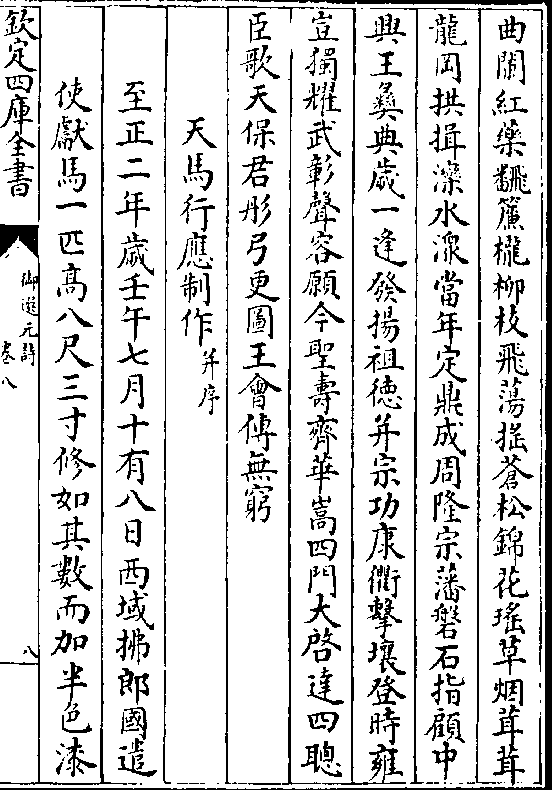 曲闌紅藥翻簾櫳柳枝飛蕩揺蒼松錦花瑤草烟茸茸
龍岡拱揖灤水潨當年定鼎成周隆宗藩磐石指顧中
興王彞典歳一逢發揚祖徳并宗功康衢擊壤登時雍
豈獨耀武彰聲容願今聖壽齊華嵩四門大啓達四聰
臣歌天保君彤弓更圖王會傳無窮
天馬行應制作并序
至正二年歳壬午七月十有八日西域拂郎國遣
使獻馬一匹髙八尺三寸修如其數而加半色漆
欽定四庫全書
御選元詩
卷八
八